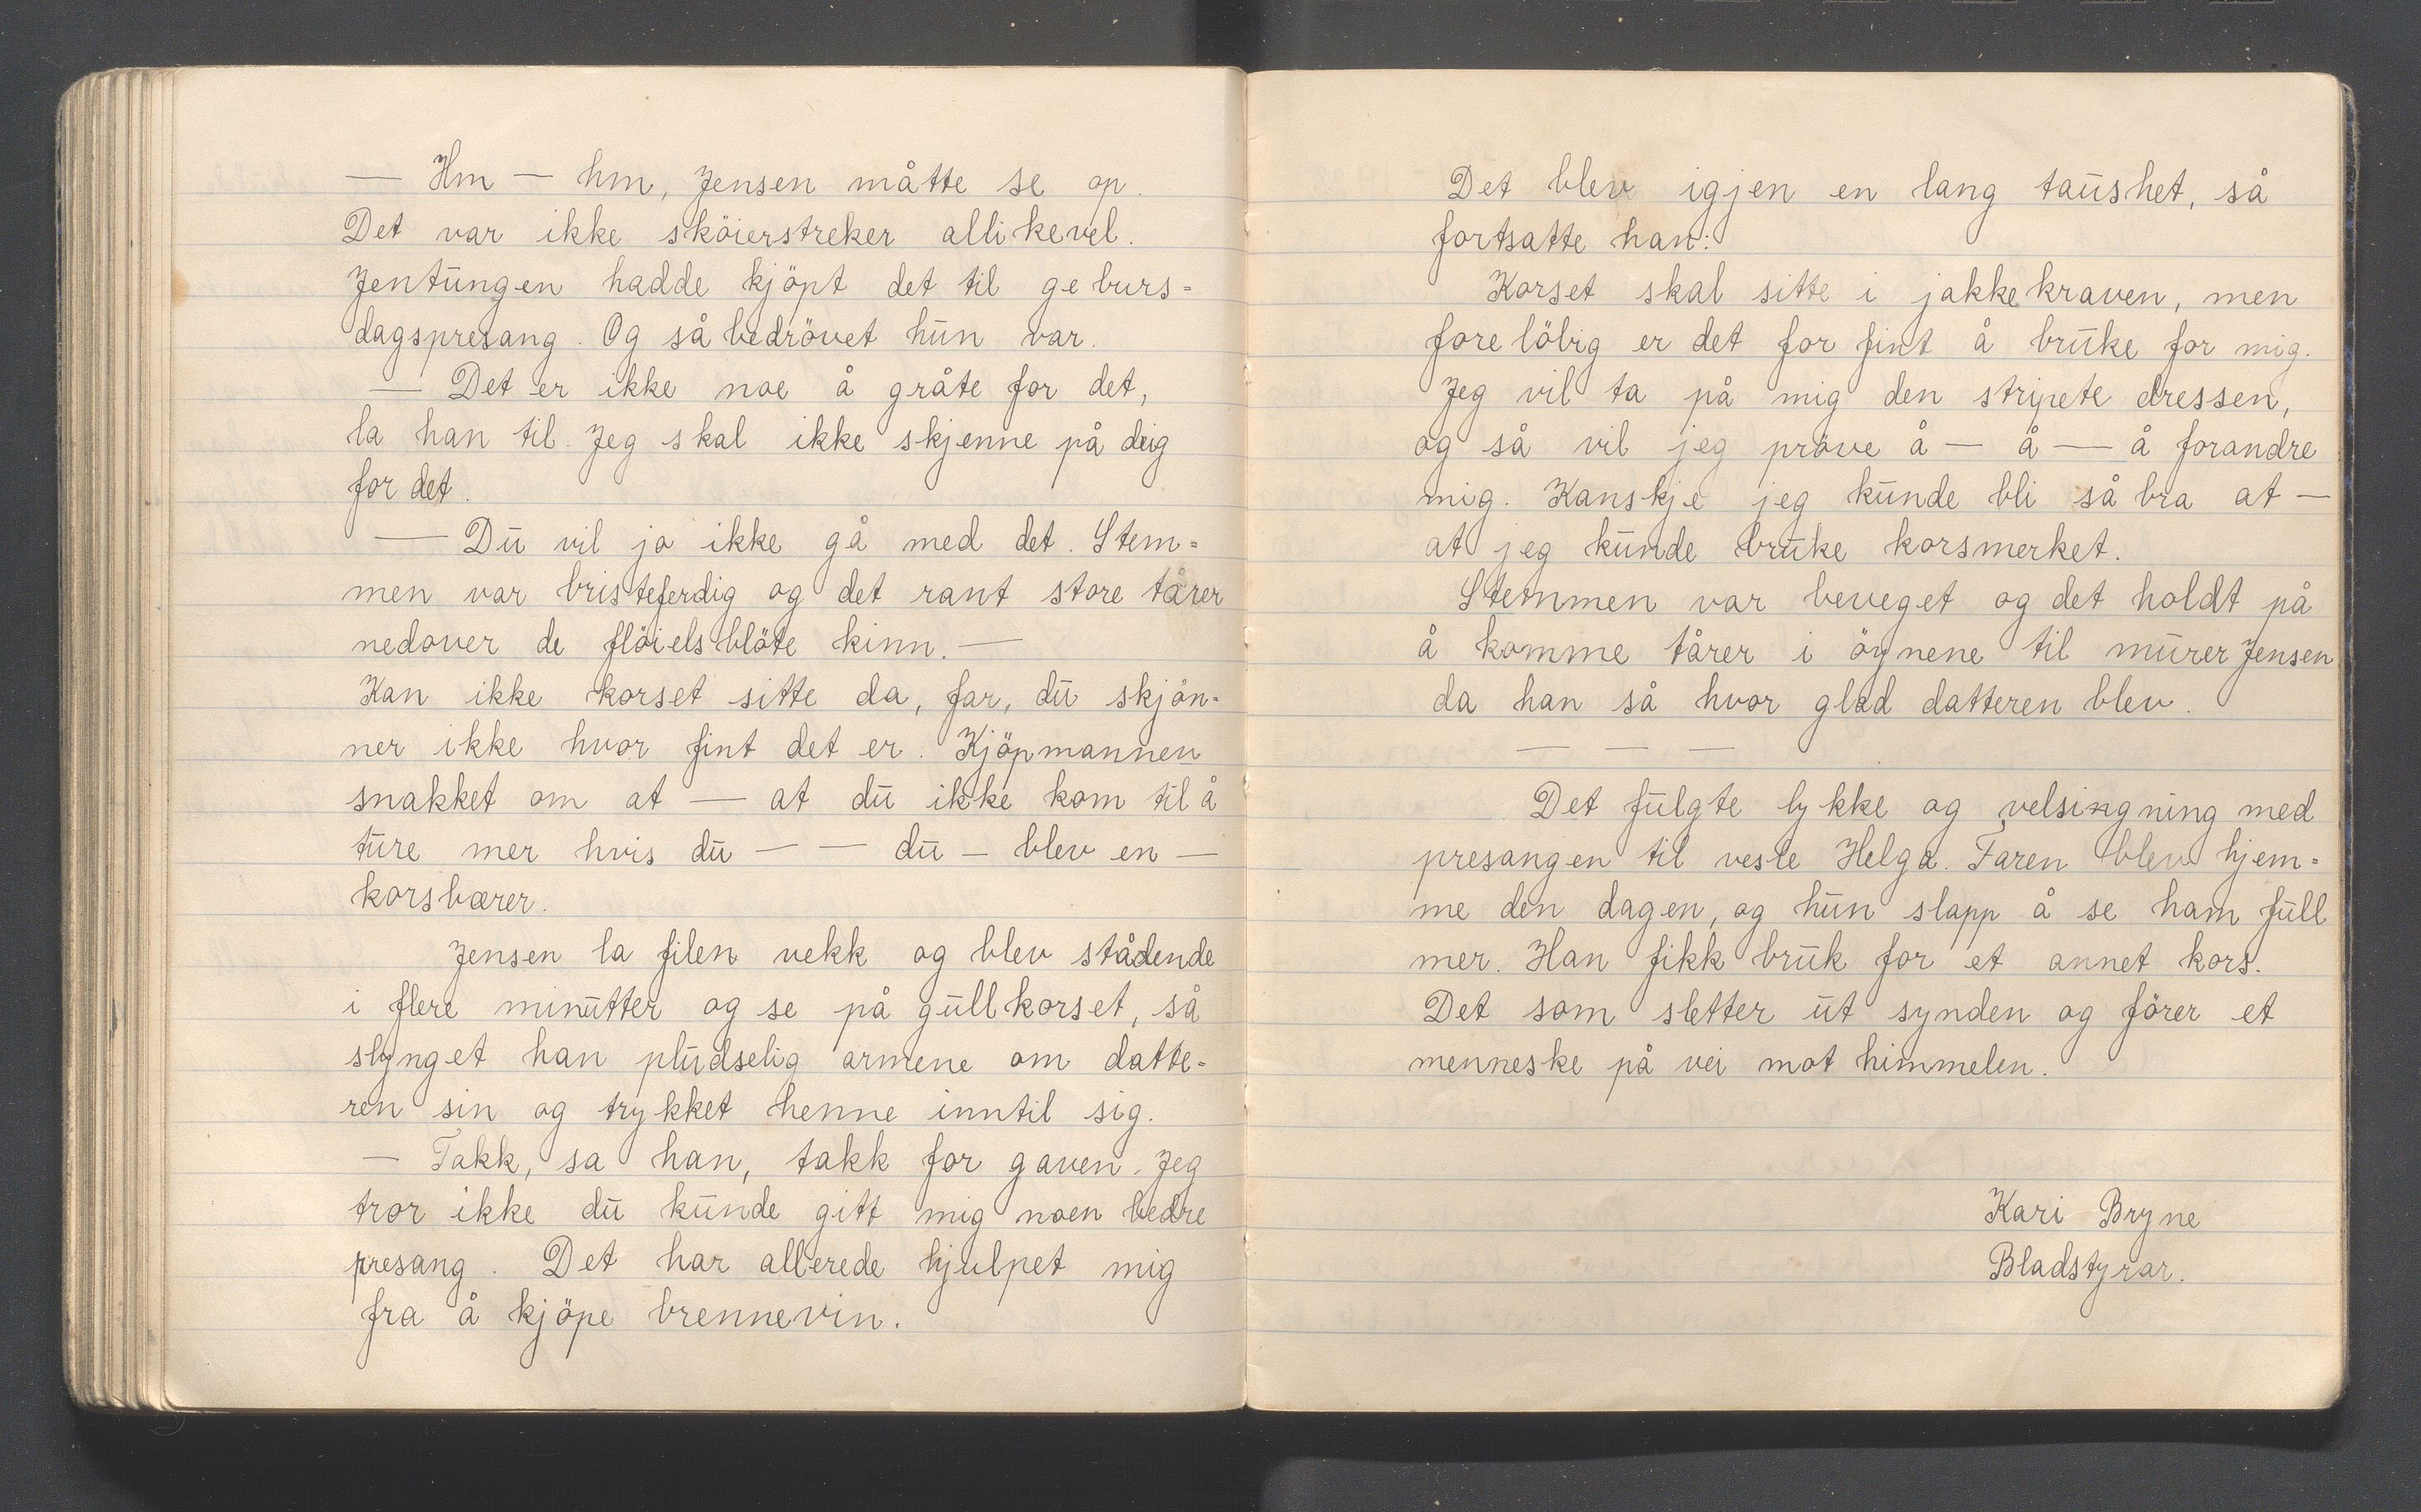 — Hm — hm, Jensen måtte se op.
Det var ikke sköierstreker allikevel.
Jentungen hadde kjöpt det til geburs=
dagspresang. Og så bedrövet hun var.
— Det er ikke noe å gråte for det,
la han til. Jeg skal ikke skjenne på deig
for det.
— Du vil jo ikke gå med det. Stem=
men var bristeferdig og det rant store tårer
nedover de flöielsblöte kinn. —
Kan ikke korset sitte da, far, du skjön=
ner ikke hvor fint det er. Kjöpmannen
snakket om at — at du ikke kom til å
ture mer hvis du — — du — blev en —
korsbærer.
Jensen la filen vekk og blev stådende
i flere minutter og se på gullkorset, så
slynget han pludselig armene om datte=
ren sin og trykket henne inntil sig.
— Takk, sa han, takk for gaven. Jeg
tror ikke du kunde gitt mig noen bedre
presang. Det har allerede hjulpet mig
fra å kjöpe brennevin.
Det blev igjen en lang taushet, så
fortsatte han:
Korset skal sitte i jakkekraven, men
forelöbig er det for fint å bruke for mig.
Jeg vil ta på mig den stripete dressen,
og så vil jeg pröve å — å — å forandre
mig. Kanskje jeg kunde bli så bra at —
at jeg kunde bruke korsmerket.
Stemmen var beveget og det holdt på
å komme tårer i öynene til murer Jensen
da han så hvor glad datteren blev.
— — —
Det fulgte lykke og velsingning med
presangen til vesle Helga. Faren blev hjem=
me den dagen, og hun slapp å se ham full
mer. Han fikk bruk for et annet kors.
Det som sletter ut synden og förer et
menneske på vei mot himmelen.
Kari Bryne
Bladstyrar.